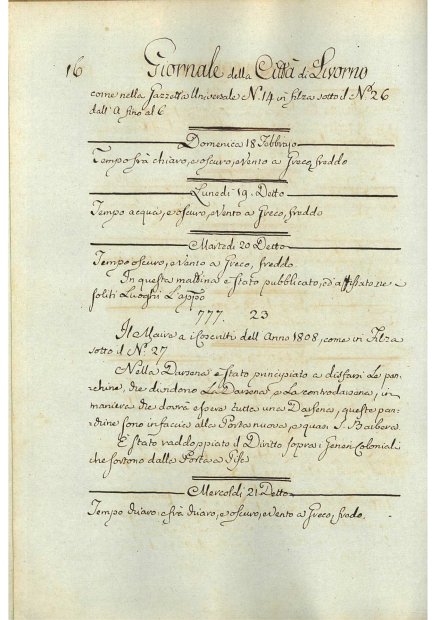 16 Giornale della Città di Livorno
come nella Gazzetta Universale N. 14 in filza sotto il N. 26
dall' A fino al 6
Domenica 18 Febbrajo
Tempo frà chiaro, e oscuro, e Vento a Greco, freddo
Lunedi 19. Detto
Tempo acqua, e oscuro, e Vento a Greco, freddo
Martedi 20 Detto
Tempo oscuro, e Vento a Greco, freddo
In questa mattina è stato pubblicato, ed affissato ne
soliti Luoghi L'apppo
777. 23
Il Maire a i Coscritti dell' Anno 1808, come in Filza
sotto il N. 27
Nella Darsena è stato principiato a disfarsi Le
chine, che dividono La Darsena, e La controdarsena, in
maniera che dovrà essere tutta una Darsena, queste
chine sono in faccia alla Porta nuova, e quasi S. Barbera
È stato raddoppiato il Diritto sopra i Generi Coloniali
che sortono dalla Porta a Pisa
Mercoldi 21 Detto
Tempo chiaro, e frà chiaro, e oscuro, e Vento a Greco, fredo.